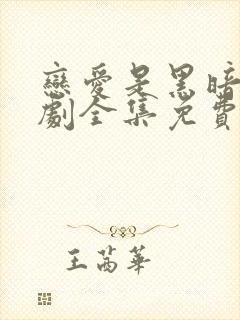 戀愛是黑暗
劇全集免費
王芮華